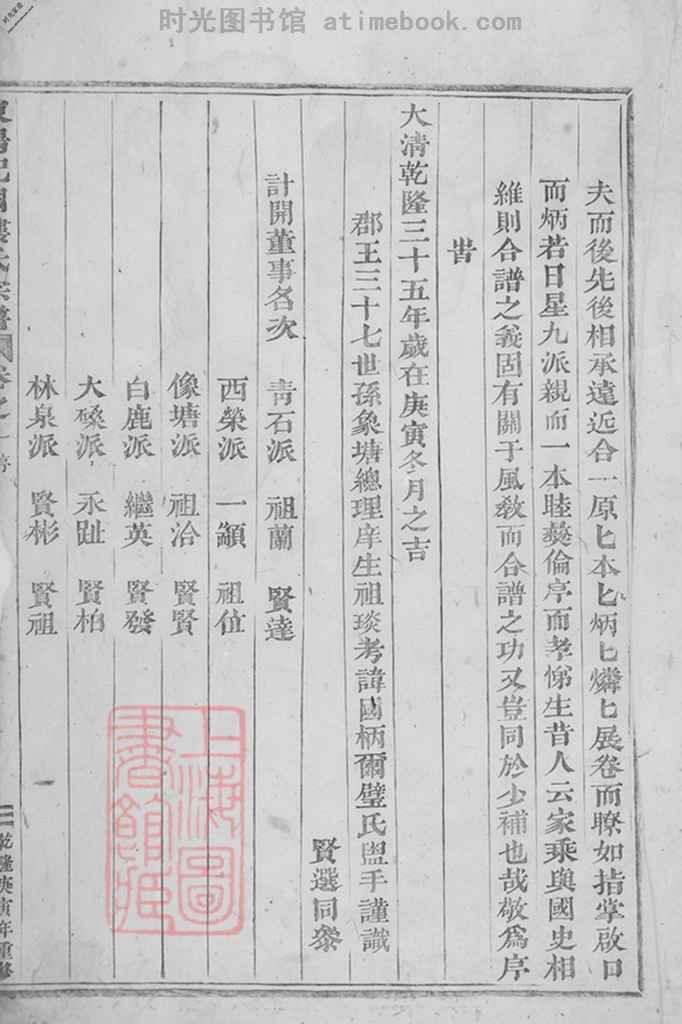 时光图书馆 atimebook.com
夫而後先後相承遠近合一原匕本匕炳匕燐匕展卷而瞭如指掌啟口
而炳若日星九派親而一本睦彝倫序而孝悌生昔人云家乘與國史相
維則合譜之義固有關于風教而合譜之功又豈同於少補也哉敬為序
旹
大清乾隆三十五年歲在庚寅冬月之吉
郡王三十七世孫象塘總理庠生祖琰考諱國柄爾璧氏盥手謹識
賢選同叅
計開董事名次 青石派 祖蘭 賢達
西榮派 一顓 祖位
像塘派 祖洽 賢賢
白鹿派 繼英 賢發
大磉派 永趾 賢柏
林泉派 賢彬 賢祖
卷之一序
乾隆庚寅年重修
上海圖
書館藏